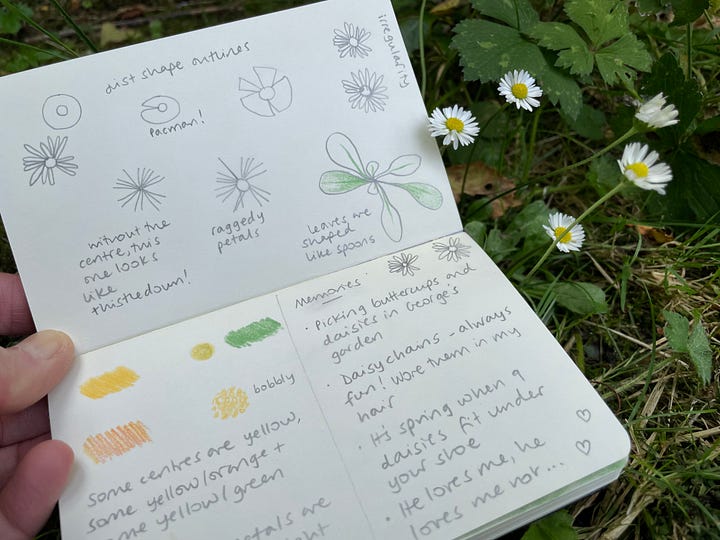 just shape outlines
irregularity
pacman!
without the
centre, this
one looks
like
thistledown!
raggedy
petals
leaves are
shaped
like spoons
bobbly
some centres are yellow,
some yellow/orange +
some yellow/green
petals are
Memories
• Picking buttercups and
daisies in George's
garden
• Daisy chains - always
fun! Wore them in my
hair
• It's spring when 9
daisies fit under
your shoe
• He loves me, he
loves me not...